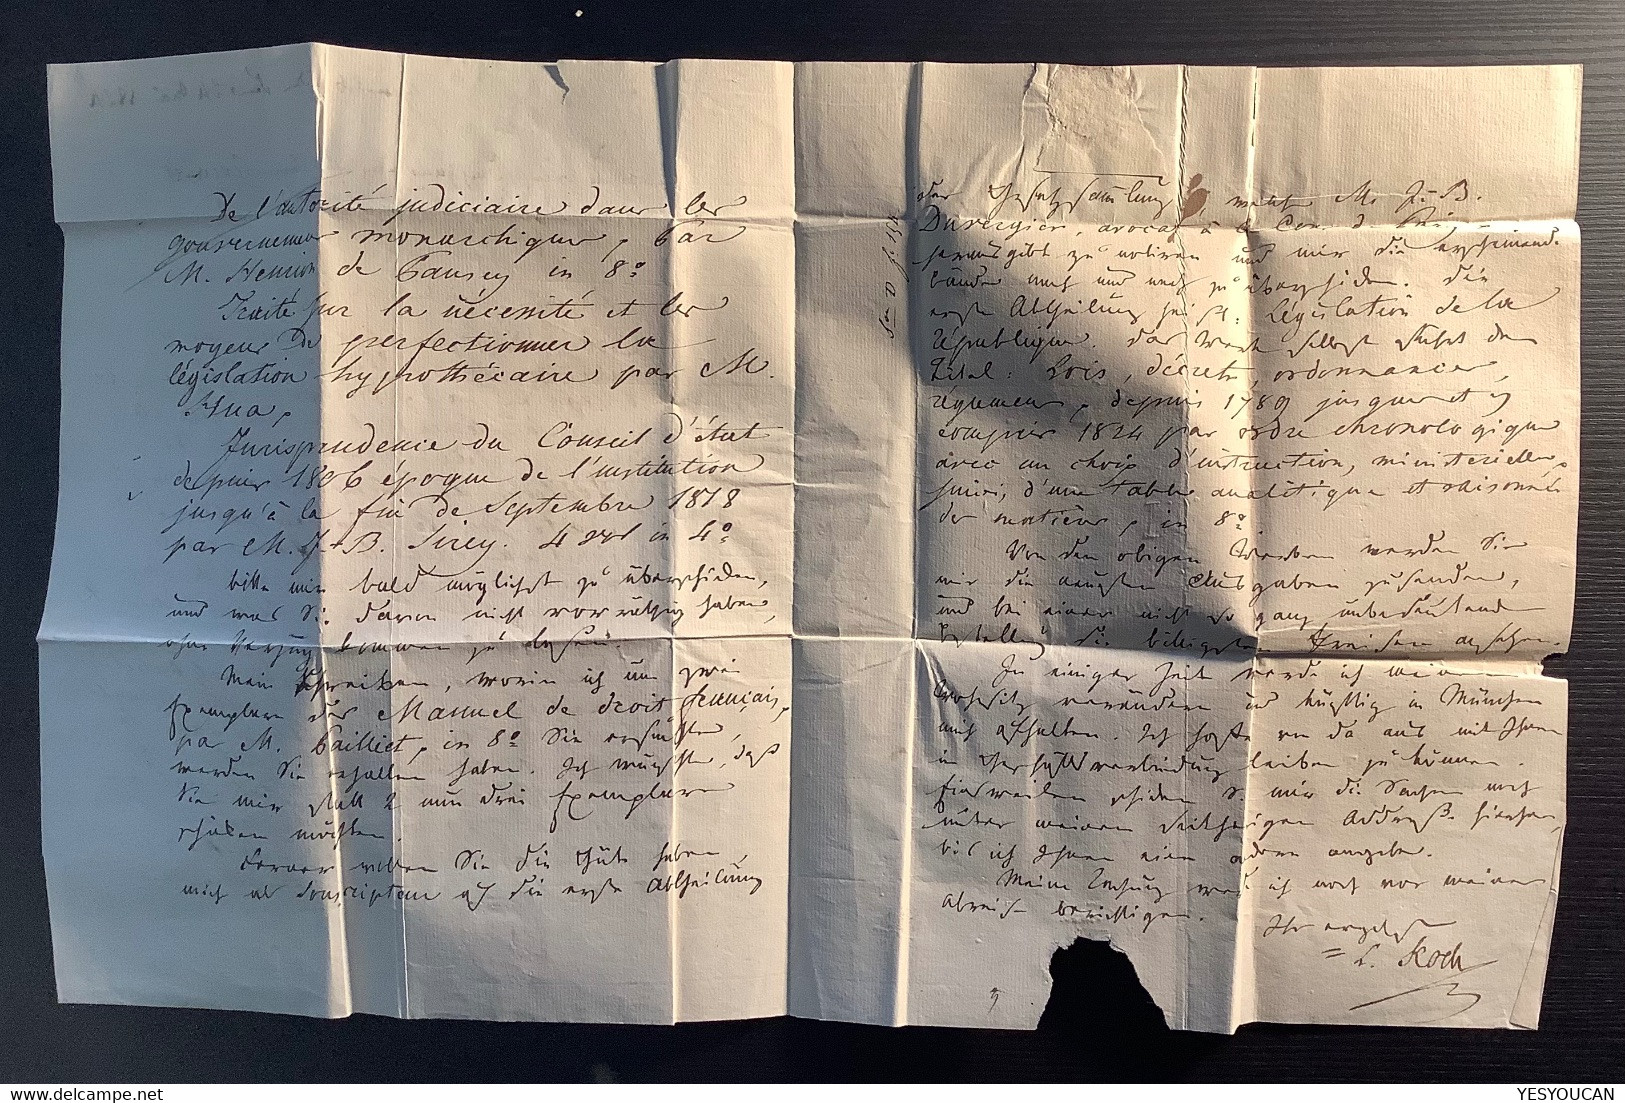 De l'autorité judiciaire dans les
gouvernemens monarchiques, par
M. Henrion de Pansey in 8º
Traité sur la nécessité et les
moyens de perfectionner la
législation hypothécaire par M.
Hua,
Jurisprudence du Conseil d'état
depuis 1806 époque de l'institution
jusqu'à la fin de Septembre 1818
par M. J-B. Sirey. 4 vol in 4º
bitte mir bald möglichst zu überschicken,
und was Sie davon nicht vorräthig haben,
ohne Verzug kommen zu lassen.
Mein Schreiben, worin ich um zwei
Exemplare des Manuel de droit français,
par M. Pailliet, in 8º Sie ersuchte,
werden Sie erhalten haben. Ich wünschte, daß
Sie mir statt 2 nun drei Exemplare
schicken möchten.
Ferner wollen Sie die Güte haben
mich als Souscripteur auf die erste Abtheilung
der Gesetzsammlung welche M. J.-B.
Duvergier, avocat à la Cour de
herausgibt zu notiren und mir die erscheinende
Bände nach und nach zu überschicken. Die
erste Abtheilung heißt: Législation de la
République. Das Werk selbst führt den
Titel: Lois, décrets, ordonnances,
règlemens, depuis 1789 jusques et y
compris 1824 par ordre chronologique
avec un choix d'instructions, ministerielles,
suivi, d'une table analitique et raisonnée
des matières, in 8º.
Von den obigen Werken werden Sie
mir die neusten Ausgaben zusenden,
und bei einer nicht so ganz unbedeutenden
Bestellung die billigsten Preise ansetzen.
In einiger Zeit werde ich meinen
Wohnsitz verändern und künftig in München
mich aufhalten. Ich hoffe von da aus mit Ihnen
in Geschäftsverbindung bleiben zu können.
Einsweilen schicken Sie mir die Sachen noch
unter meiner seitherigen Addresse hierher,
bis ich Ihnen eine andere angebe.
Meine Rechnung werde ich noch vor meiner
Abreise berichtigen.
Ihr ergebenster
L. Koch
YESYOUCAN